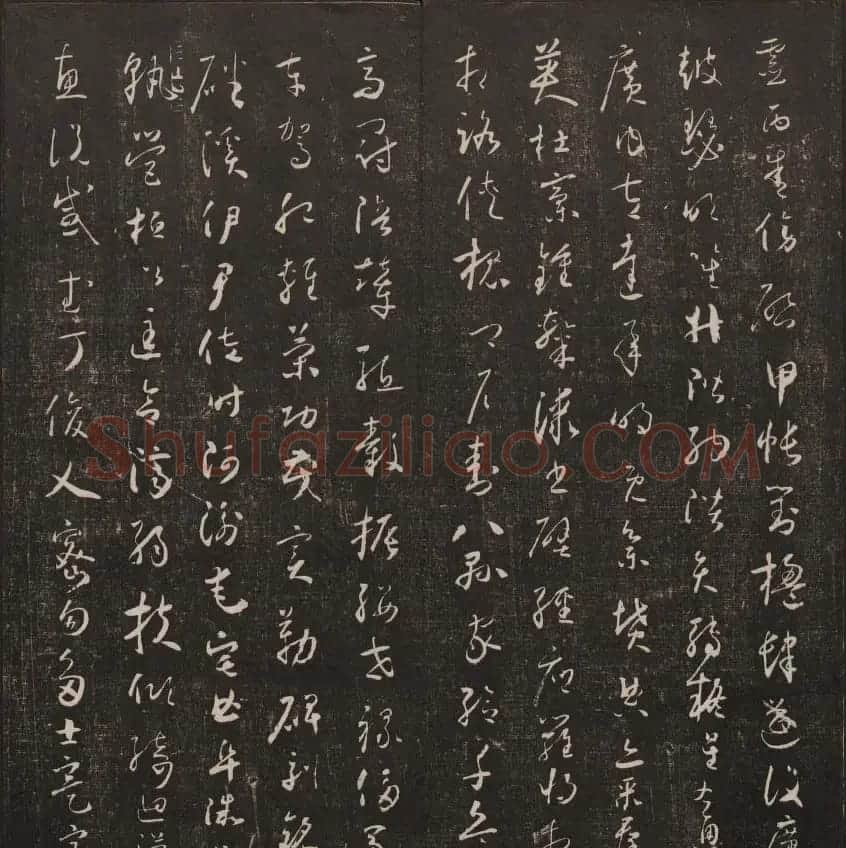 靈丙舍傍啟甲帳對楹肆筵設席
鼓瑟吹笙升階納陛弁轉疑星右通
廣內左達承明既集墳典亦聚群
英杜稾鍾隸漆書壁經府羅將
相路俠槐卿戶封八縣家給千兵
高冠陪輦驅轂振纓世祿侈富
車駕肥輕策功茂實勒碑刻銘
磻溪伊尹佐時阿衡奄宅曲阜微
孰營桓公匡合濟弱扶傾綺迴漢
惠說感武丁俊乂密勿多士寔寧
Shufaziliao.COM